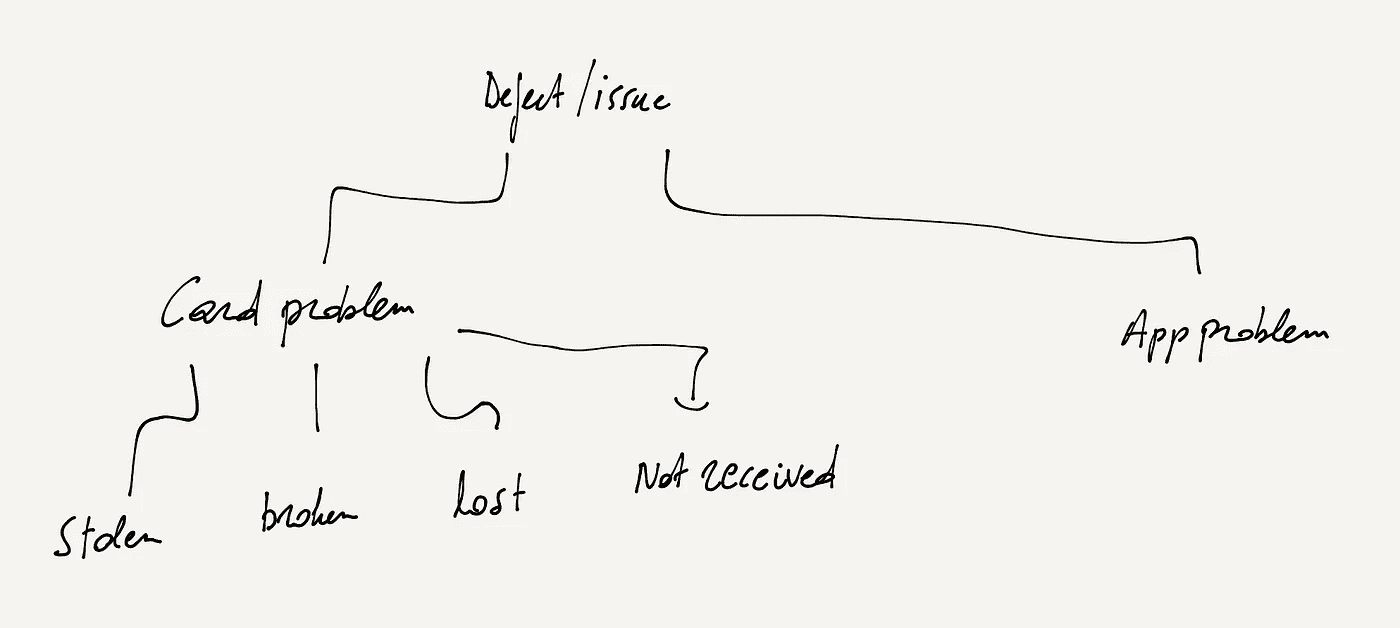 Defect/issue
Card problem
App problem
Stolen
broken
Lost
Not received